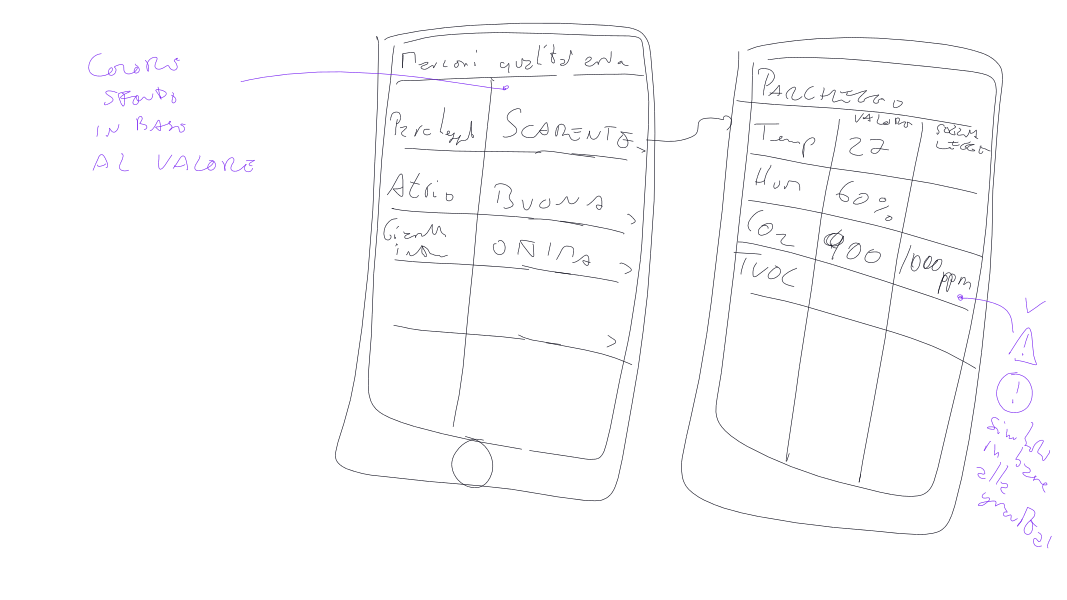 COLORE
SFONDO
IN BASE
AL VALORE
Marconi qualità aria
SCARENTE
Atrio BUONA
OTTIMA
PARCHEGGIO
VALORE SOGLIA
LEGGE
Temp 27
Hum 60%
CO2 900 1000 ppm
TVOC
!
!
simboli
in base
alla
gravità